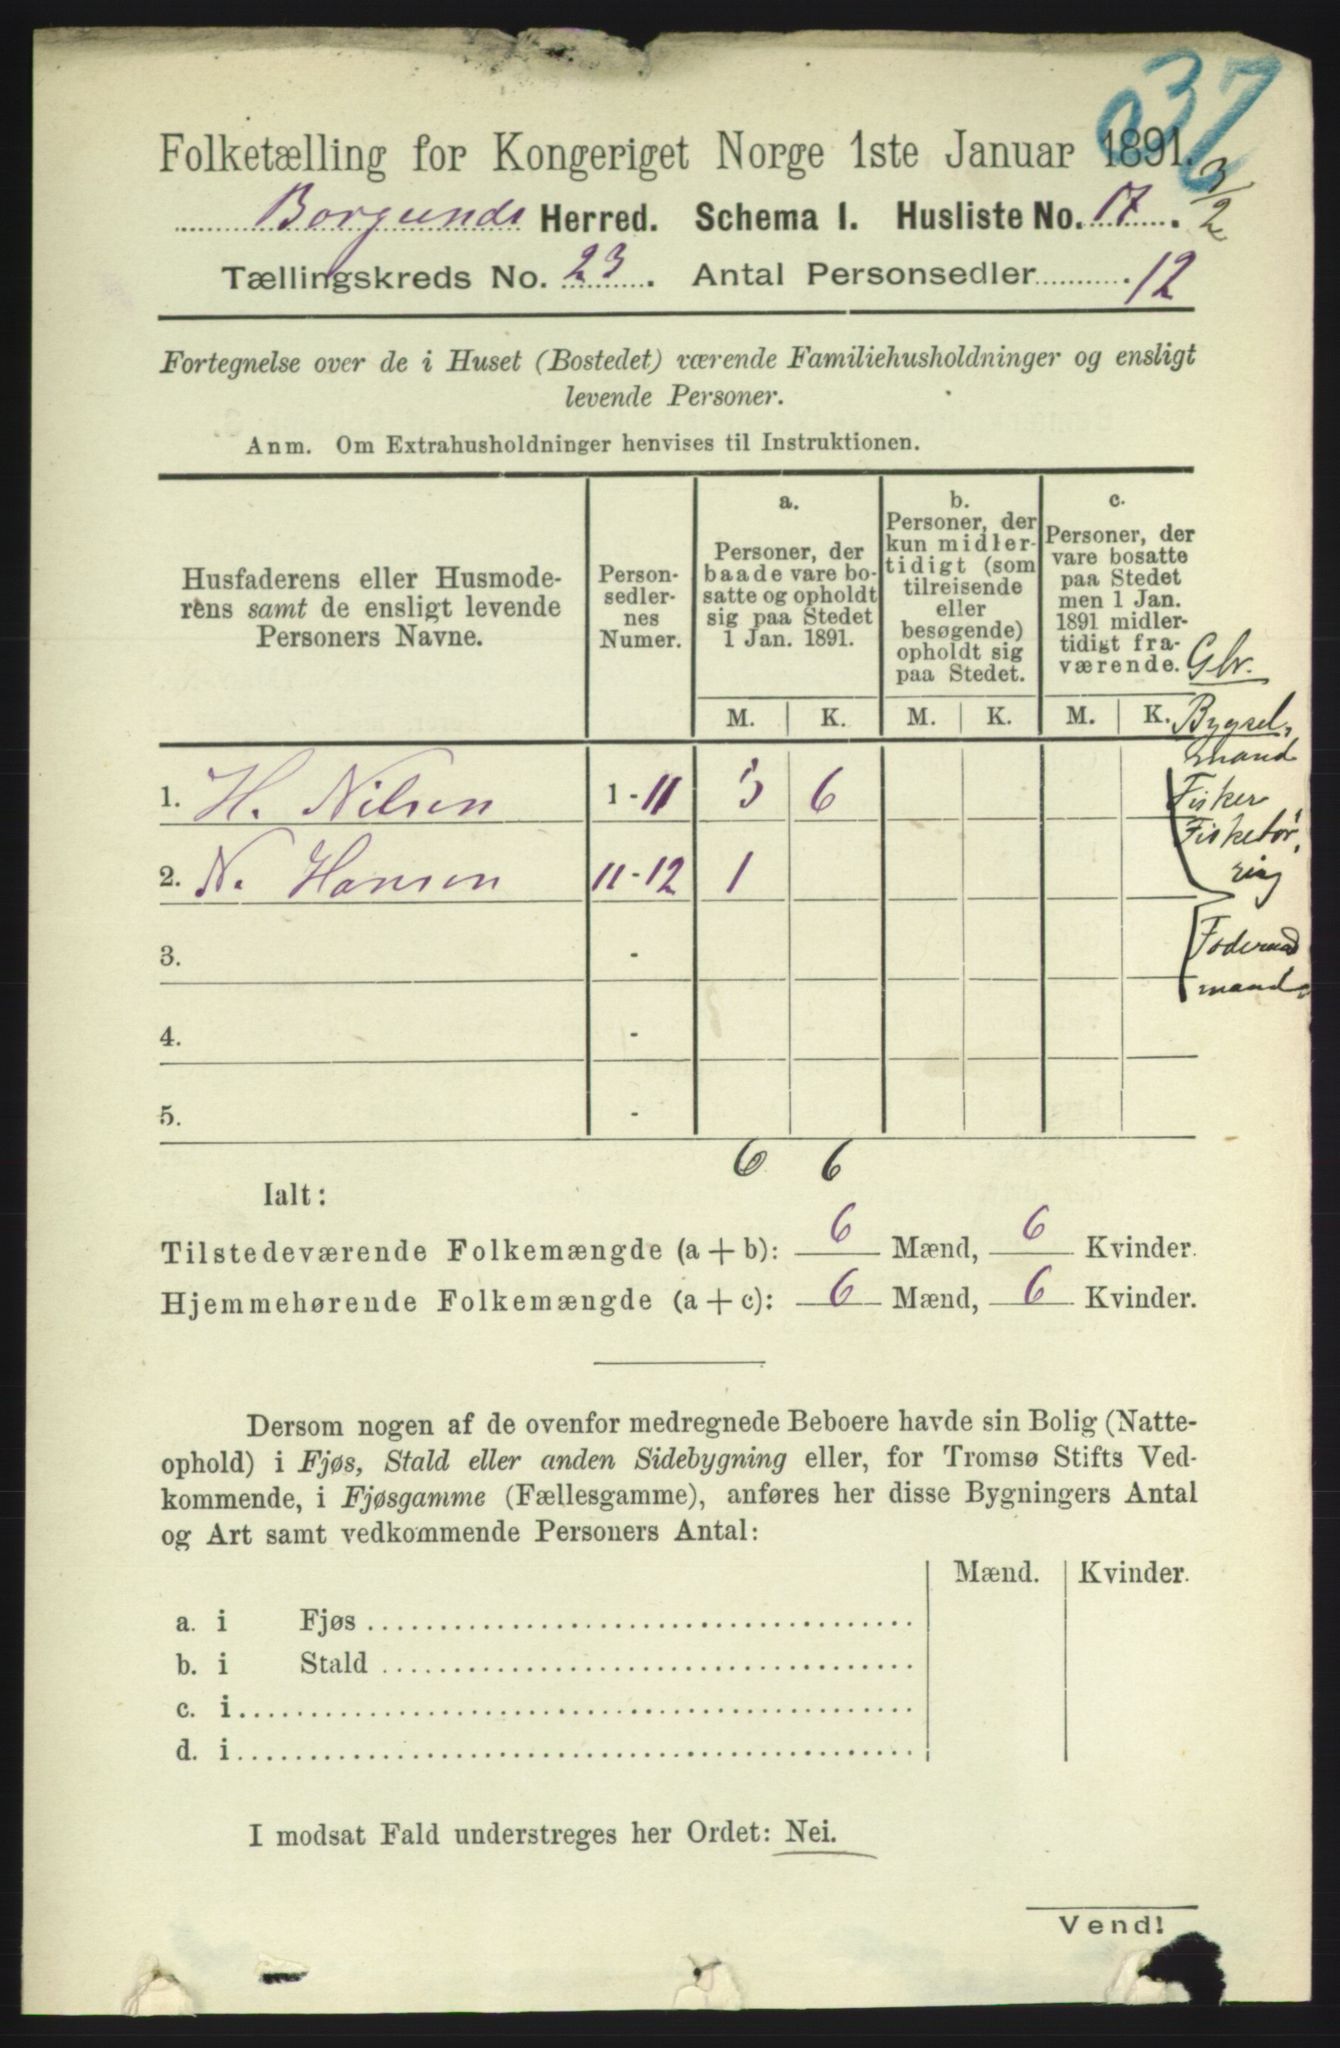 37
Folketælling for Kongeriget Norge 1ste Januar 1891.
3/2
Borgunds Herred. Schema I. Husliste No. 17.
Tællingskreds No. 23. Antal Personsedler 12
Fortegnelse over de i Huset (Bostedet) værende Familiehusholdninger og ensligt
levende Personer.
Anm. Om Extrahusholdninger henvises til Instruktionen.
Husfaderens eller Husmode-
rens samt de ensligt levende
Personers Navne.
Person-
sedler-
nes
Numer.
a.
Personer, der
baade vare bo-
satte og opholdt
sig paa Stedet
1 Jan. 1891.
b.
Personer, der
kun midler-
tidigt (som
tilreisende
eller
besøgende)
opholdt sig
paa Stedet.
c.
Personer, der
vare bosatte
paa Stedet
men 1 Jan.
1891 midler-
tidigt fra-
værende.
M. K. M. K. M. K.
Gbr.
Bygsel-
mand
Fisker
Fisketør-
ring
Foderaad
mand
1. H. Nilsen 1-11 5 6
2. N. Hansen 11-12 1
3. -
4. -
5. -
6 6
Ialt:
Tilstedeværende Folkemængde (a + b): 6 Mænd, 6 Kvinder.
Hjemmehørende Folkemængde (a + c): 6 Mænd, 6 Kvinder.
Dersom nogen af de ovenfor medregnede Beboere havde sin Bolig (Natte-
ophold) i Fjøs, Stald eller anden Sidebygning eller, for Tromsø Stifts Ved-
kommende, i Fjøsgamme (Fællesgamme), anføres her disse Bygningers Antal
og Art samt vedkommende Personers Antal:
Mænd. Kvinder.
a. i Fjøs
b. i Stald
c. i
d. i
I modsat Fald understreges her Ordet: Nei.
Vend!